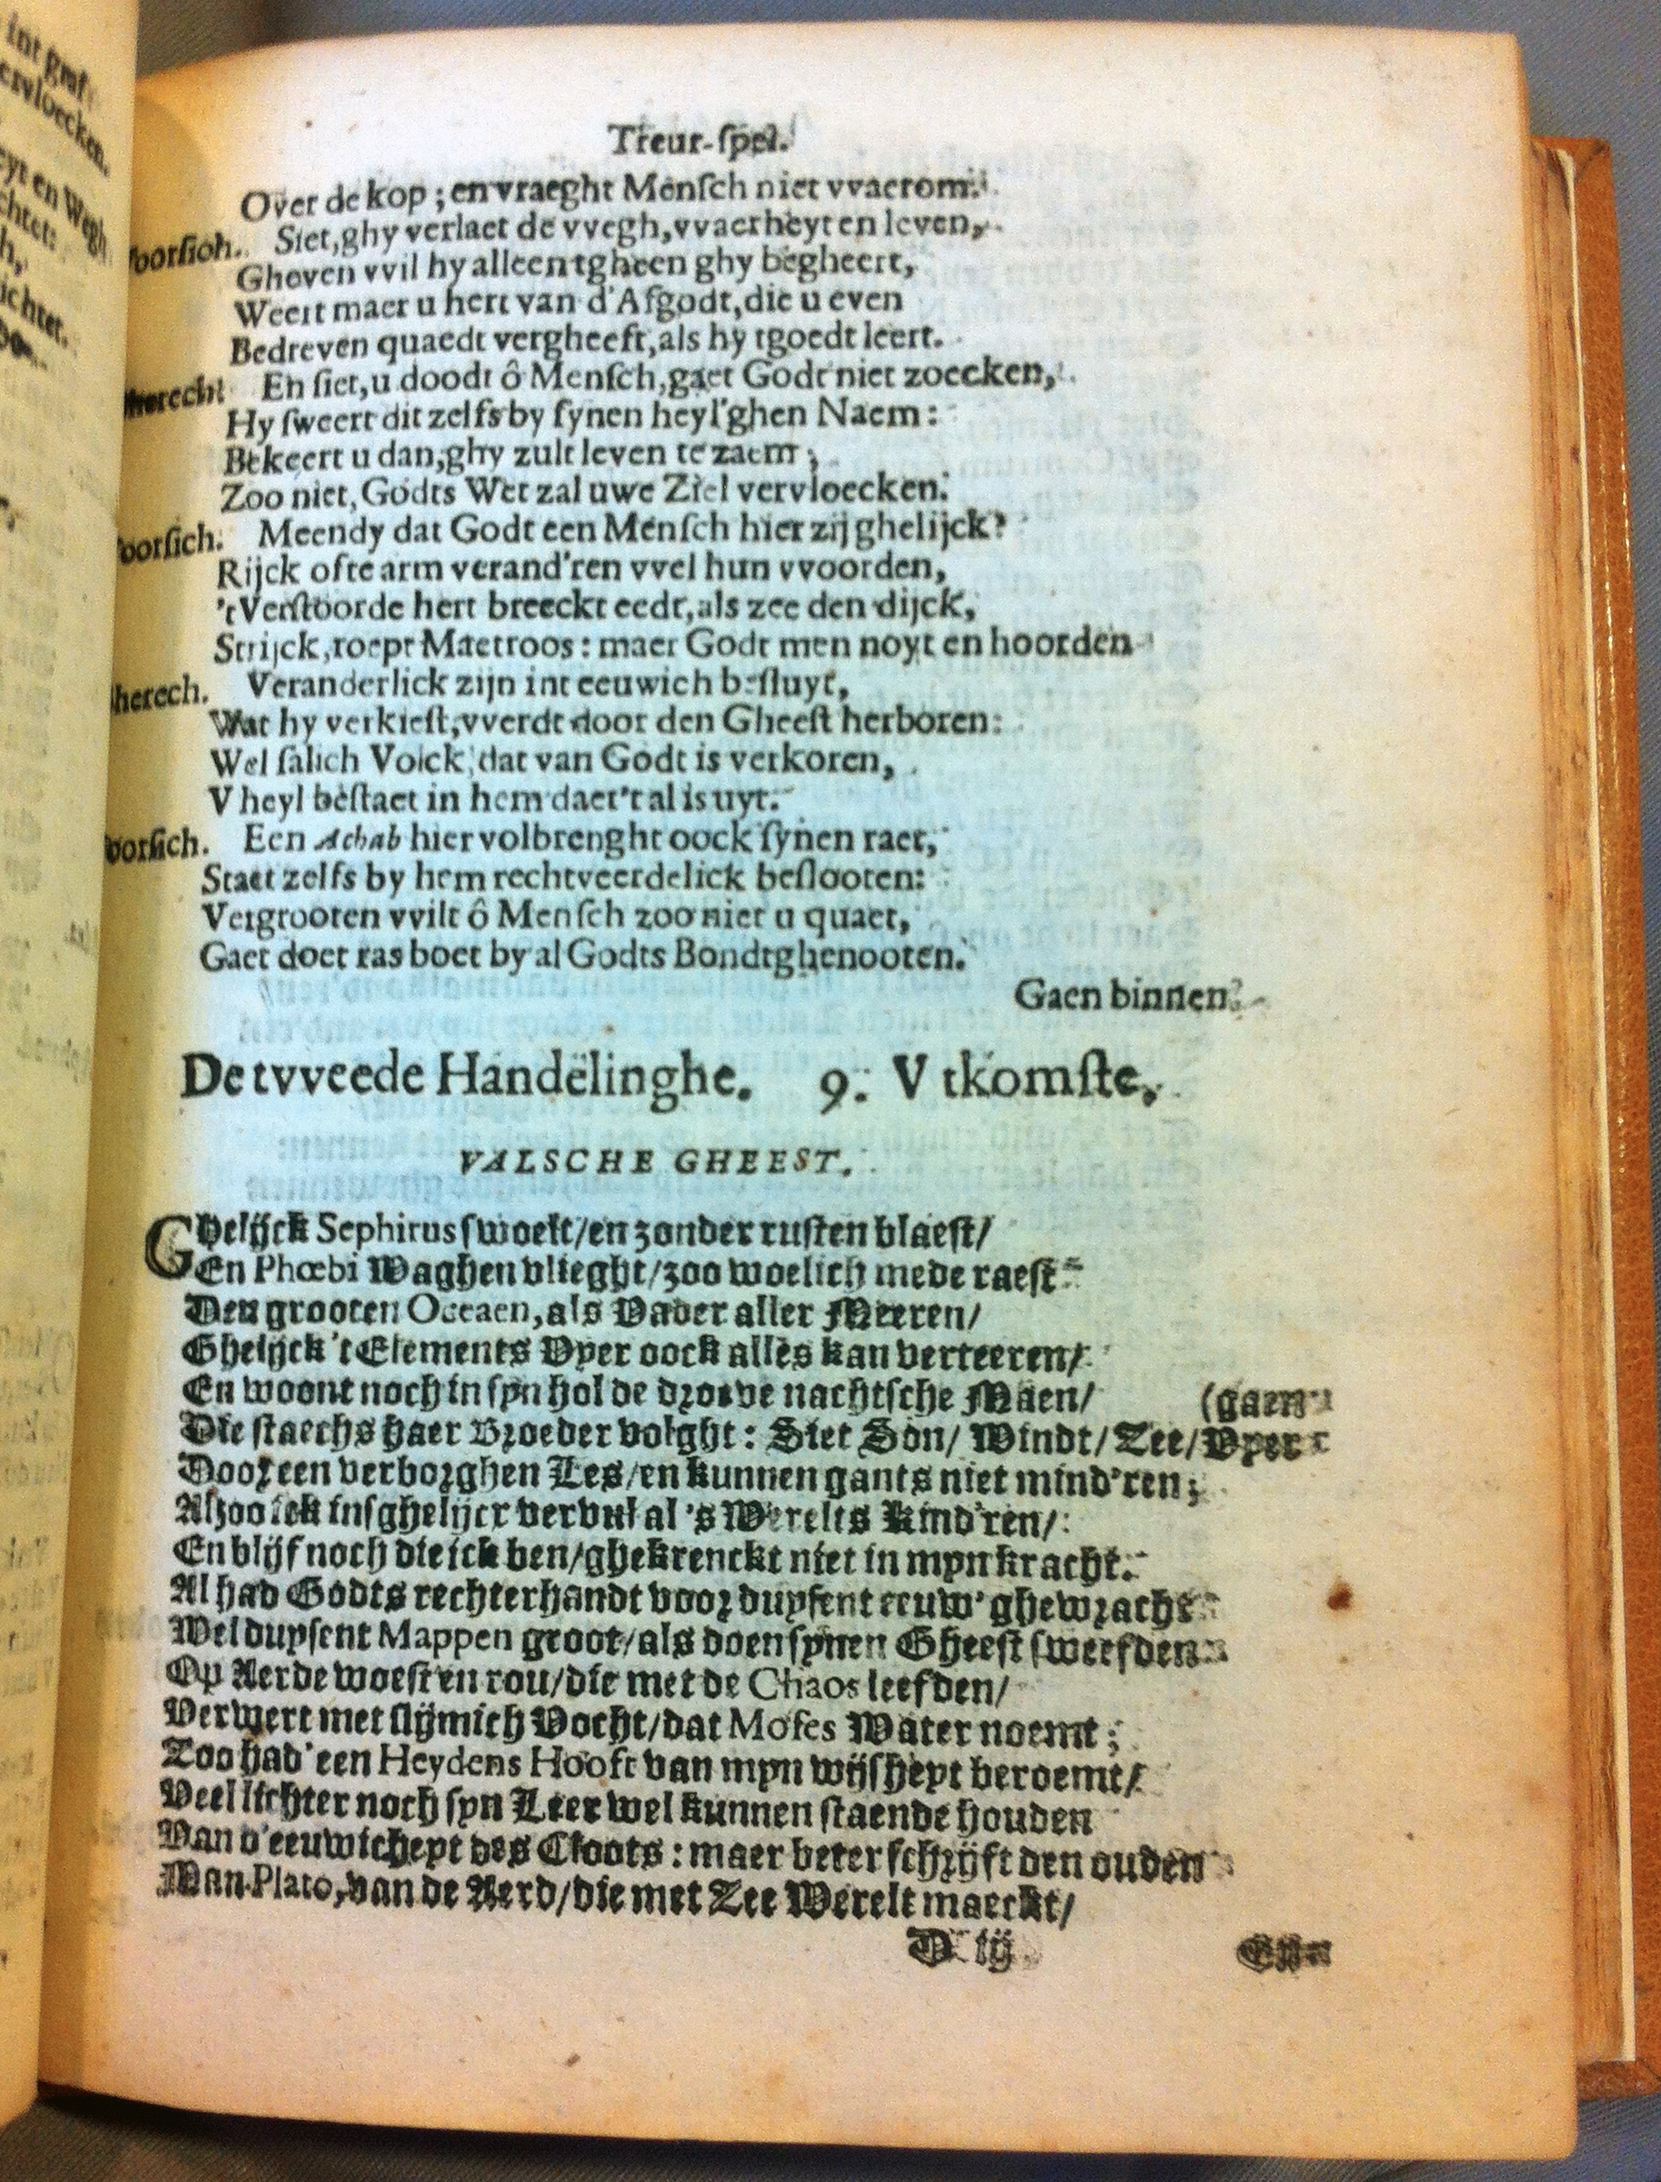 int graf
ervloecken.
eyt en Wegh
chtet:
h,
ichtet.
Treur-ſpel.
Over de kop; en vraeght Menſch niet vvaerom.
Voorſich. Siet, ghy verlaet de vvegh, vvaerheyt en leven,
Gheven vvil hy alleen tgheen ghy begheert,
Weert maer u hert van d'Afgodt, die u even
Bedreven quaedt vergheeft, als hy tgoedt leert.
Gherecht En ſiet, u doodt ô Menſch, gaet Godt niet zoecken,
Hy ſweert dit zelfs by ſynen heyl'ghen Naem:
Bekeert u dan, ghy zult leven te zaem;
Zoo niet, Godts Wet zal uwe Ziel vervloecken.
Voorſich. Meendy dat Godt een Menſch hier zij ghelijck?
Rijck ofte arm verand'ren vvel hun vvoorden,
't Verſtoorde hert breeckt eedt, als zee den dijck,
Strijck, roept Maetroos: maer Godt men noyt en hoorden
Gherech. Veranderlick zijn int eeuwich beſluyt,
Wat hy verkieſt, vverdt door den Gheeſt herboren:
Wel ſalich Volck, dat van Godt is verkoren,
V heyl beſtaet in hem daer't al is uyt.
Voorſich. Een Achab hier volbrenght oock ſynen raet,
Staet zelfs by hem rechtveerdelick beſlooten:
Vergrooten vvilt ô Menſch zoo niet u quaet,
Gaet doet ras boet by al Godts Bondtghenooten.
Gaen binnen.
De tvveede Handelinghe. 9. Vtkomſte.
VALSCHE GHEEST.
Ghelijck Sephirus ſwoelt/ en zonder ruſten blaeſt/
En Phœbi Waghen vlieght/ zoo woelich mede raeſt
Den grooten Oceaen, als Vader aller Meeren/
Ghelijck 't Elements Vyer oock alles kan verteeren/
En woont noch in ſyn hol de droeve nachtſche Maen/ (gaen
Die ſtaechs haer Broeder volght: Siet Son/ Windt/ Zee/ Vyer
Door een verborghen Les/ en kunnen gants niet mind'ren;
Alzoo ick inſghelijcx vervul al 's Werelts kind'ren/
En blijf noch die ick ben/ ghekrenckt niet in myn kracht.
Al had Godts rechterhandt voor duyſent eeuw' ghewracht
Wel duyſent Mappen groot/ als doen ſynen Gheeſt ſweefden
Op Aerde woeſt en rou/ die met de Chaos leefden/
Verwert met ſlijmich Vocht/ dat Moſes Water noemt;
Zoo had' een Heydens Hooft van myn wijſheyt beroemt/
Veel lichter noch ſyn Leer wel kunnen ſtaende houden
Van d'eeuwicheyt des Cloots: maer beter ſchrijft den ouden
Man Plato, van de Aerd/ die met Zee Werelt maeckt/
D iij